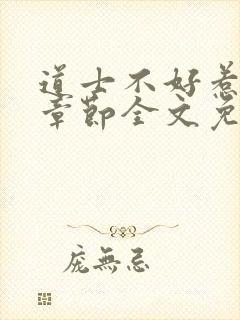 道士不好惹
章節全文免
庞無忌